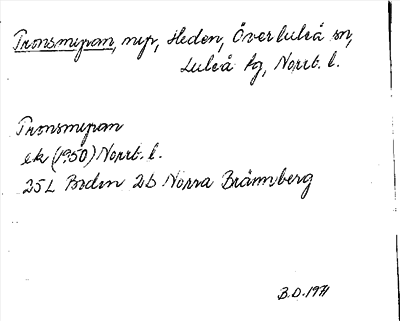 Pronsmyran, myr, Heden, Överluleå sn,
Luleå fg, Norrb. l.
Pronsmyran
ek (1950) Norrb. l.
25L Boden 2b Norra Brännberg
B.D. 1971